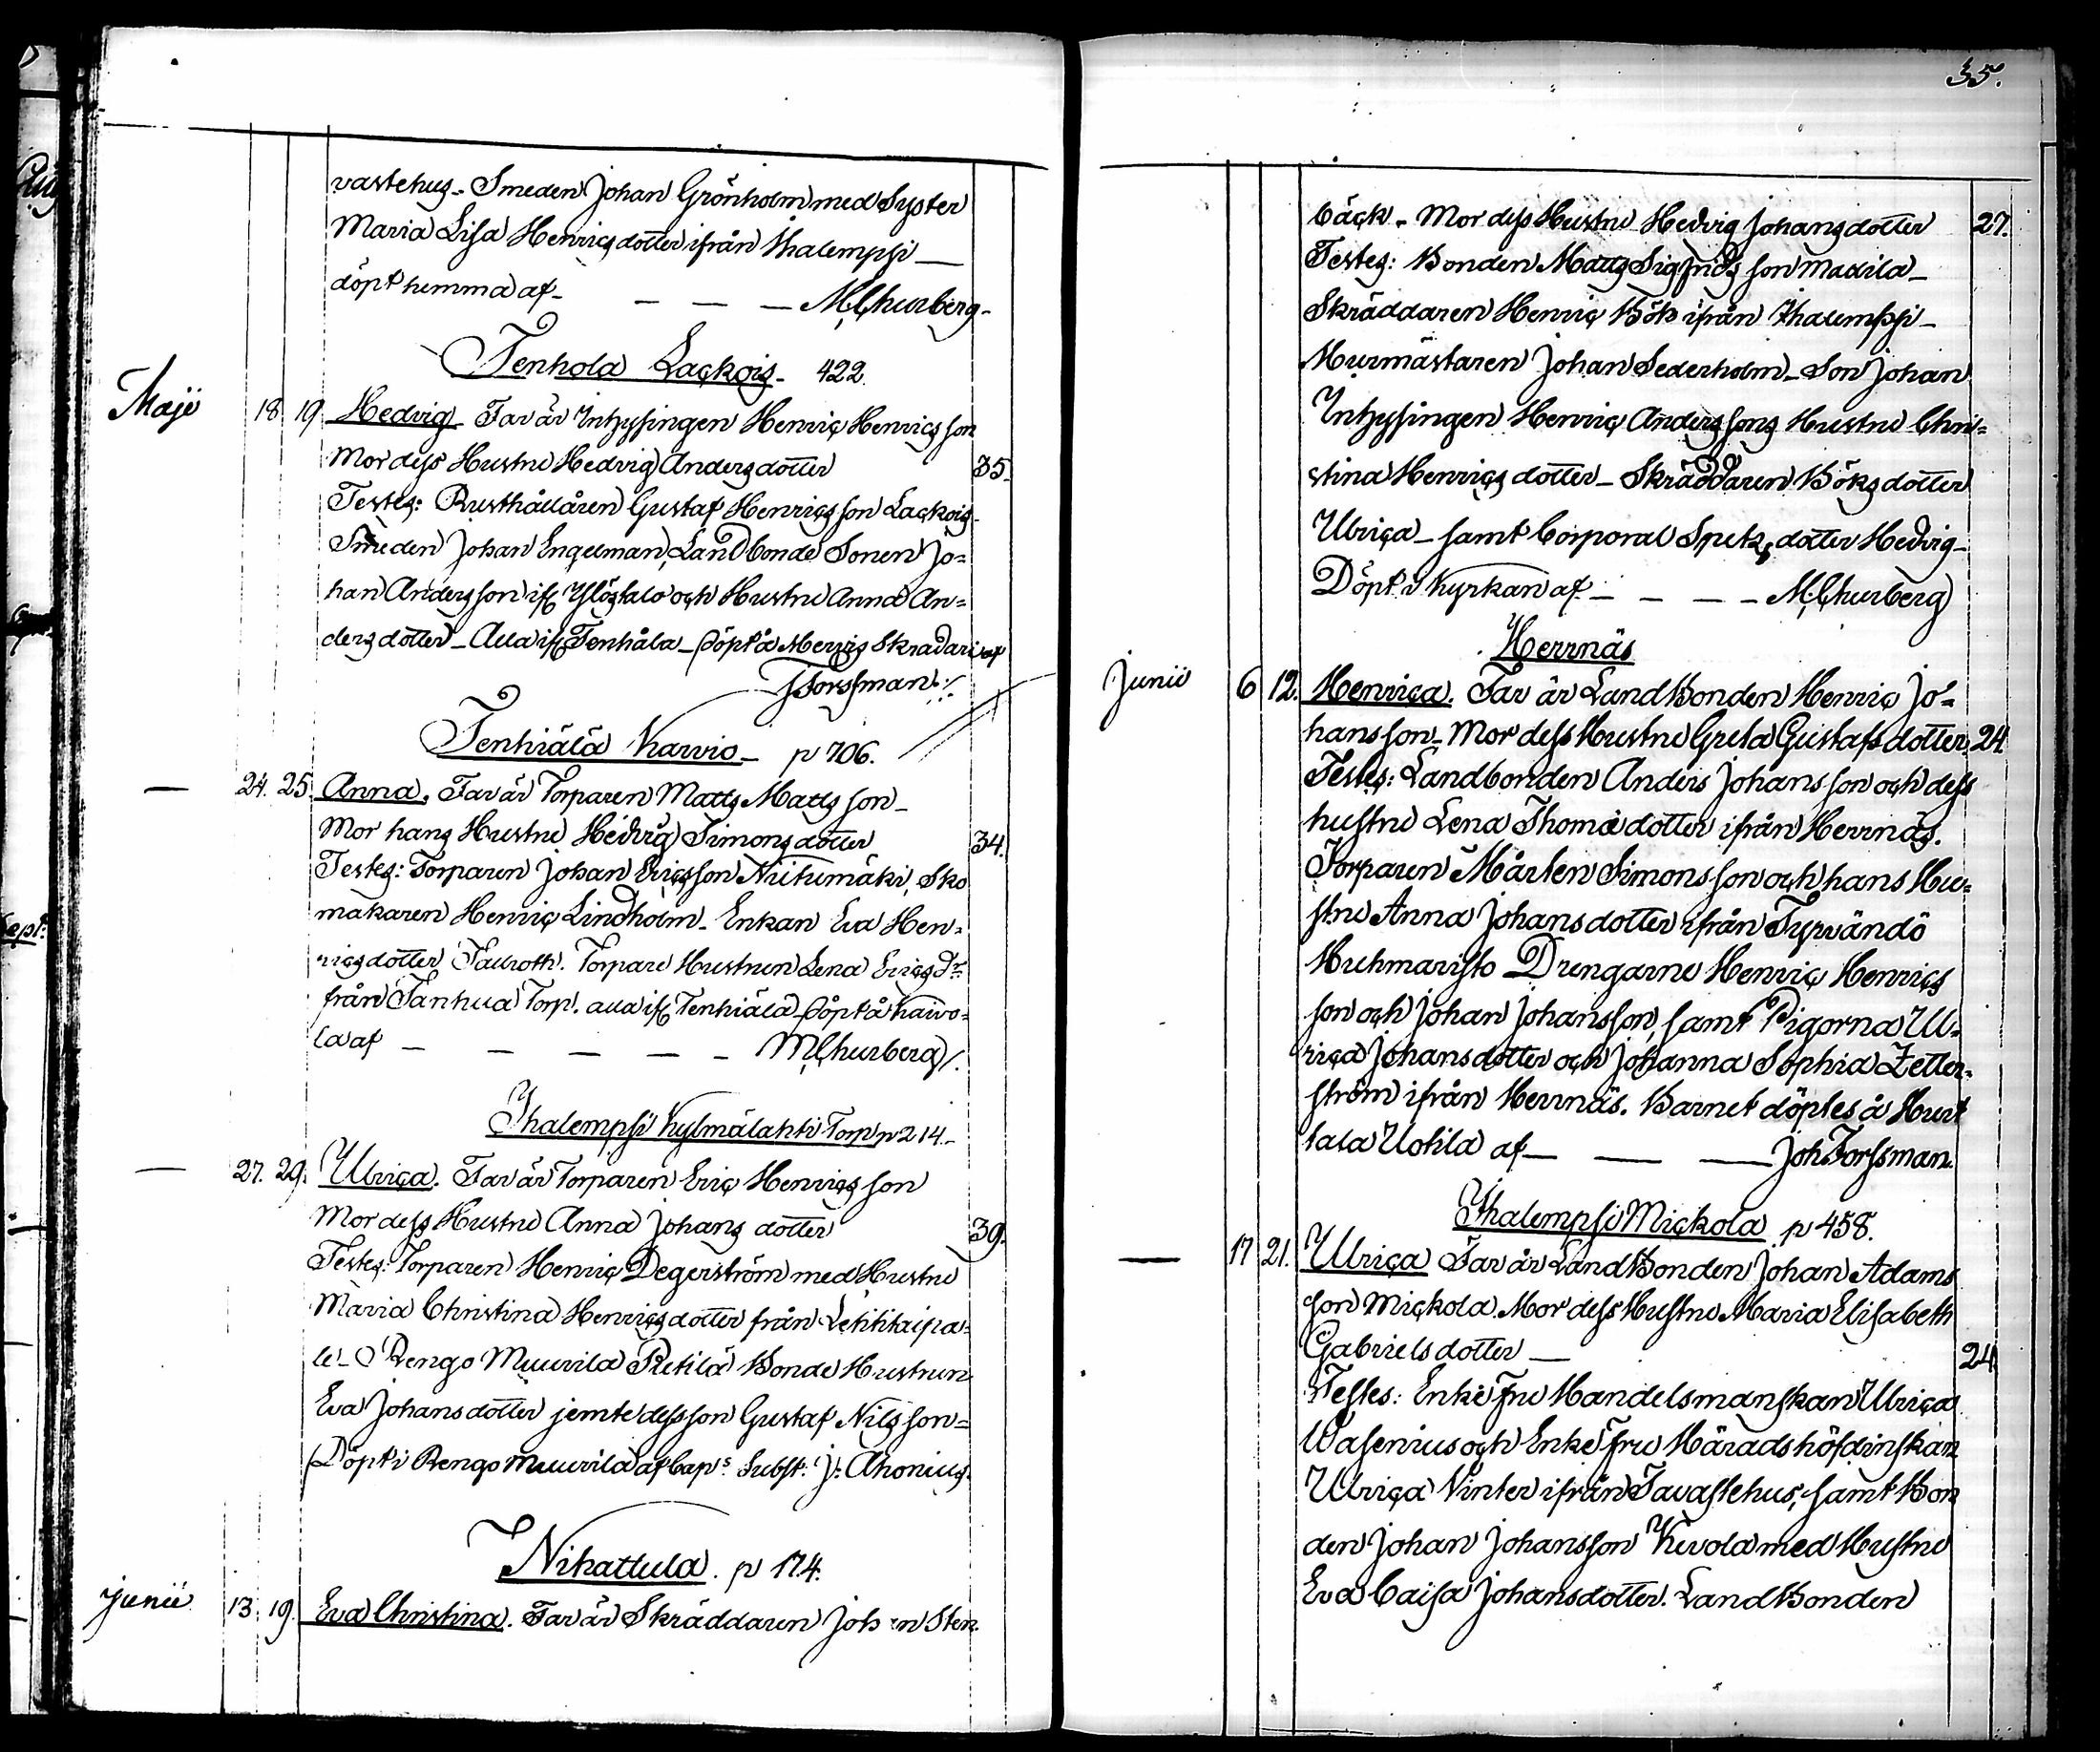 vastehus_ Smeden Johan Grönholm med Syster
Maria Lisa Henricsdotter ifrån Ihalempsi __
döpt hemma af_ _ _ _ M. Churberg_
Tenhola Lackois_ 422.
Maji 18. 19. Hedvig_ Far är Inhysingen Henric Henricsson
Mor dess Hustru Hedvig Andersdotter 35.
Testes: Rusthållåren Gustaf Henricsson Lackois_
Smeden Johan Engelman, Landbonde Sonen Jo=
han Andersson if. Ylöstalo och Hustru Anna An=
dersdotter_ Alla if. Tenhåla_ Döpt å Skradari af
J Forssman ./.
Tenhiälä Karvio_ p 706.
— 24. 25. Anna. Far är Torparen Matts Mattsson_
Mor hans Hustru Hedvig Simonsdotter 34.
Testes: Torparen Johan Ericsson Niitumäki, Sko
makaren Henric Lindholm_ Enkan Eva Hen=
ricsdotter Torpare Hustrun Lena Ericsdr
från Tanhua Torp. alla if. Tenhiälä_ Döpt å Kaivo=
la af _ _ _ _ _ M Churberg /.
Ihalempsi Kylmälahti Torp p 214._
— 27. 29. Ulrica. Far är Torparen Eric Henricsson
Mor dess Hustru Anna Johans dotter 39.
Testes: Torparen Henric Degerström med Hustru
Maria Christina Henricsdotter från
le_ Rengo Muurila Pietilä Bonde Hustrun
Eva Johansdotter jemte dess son Gustaf Nilsson=
Döpt i Rengo Muurila af Caps Subst: J: Ahonius.
Nihattula. p 174.
junii 13. 19. Eva Christina. Far är Skräddaren Johan Sten
35.
bäck_ Mor dess Hustru Hedvig Johansdotter 27.
Testes: Bonden Matts Sigfridsson Mackila_
Skräddaren Henric Böök ifrån Ihalempsi_
Murmästaren Johan Sederholm_ Son Johan
Inhysingen Henric Anderssons Hustru Chri=
stina Henricsdotter_ Skräddaren Bööks dotter
Ulrica_ samt Corporal Spets dotter Hedvig_
Döpt i Kyrkan af _ _ _ _ M. Churberg
Herrnäs
Junii 6 12. Henrica. Far är LandBonden Henric Jo=
hansson_ Mor dess Hustru Greta Gustafsdotter 24.
Testes: Landbonden Anders Johansson och dess
hustru Lena Thomædotter ifrån Herrnäs.
Torparen Mårten Simonsson och hans Hu=
stru Anna Johansdotter ifrån Tyrvändö
Huhmaristo Drengarne Henric Henrics
son och Johan Johansson, samt Pigorna Ul=
rica Johansdotter och Johanna Sophia Zetter=
ström ifrån Herrnäs. Barnet döptes å Hurt
tala Uotila af — — — Joh Forssman.
Ihalempsi Mickola p 458.
— 17 21. Ulrica Far är LandBonden Johan Adams
son Mickola. Mor dess Hustru Maria Elisabeth
Gabrielsdotter — 24
Testes: Enke fru Handelsmanskan Ulrica
Wasenius och Enke fru Häradshöfdinskan
Ulrica Vinter ifrån Tavastehus, samt Bon
den Johan Johansson Kevola med Hustru
Eva Caisa Johansdotter. LandBonden